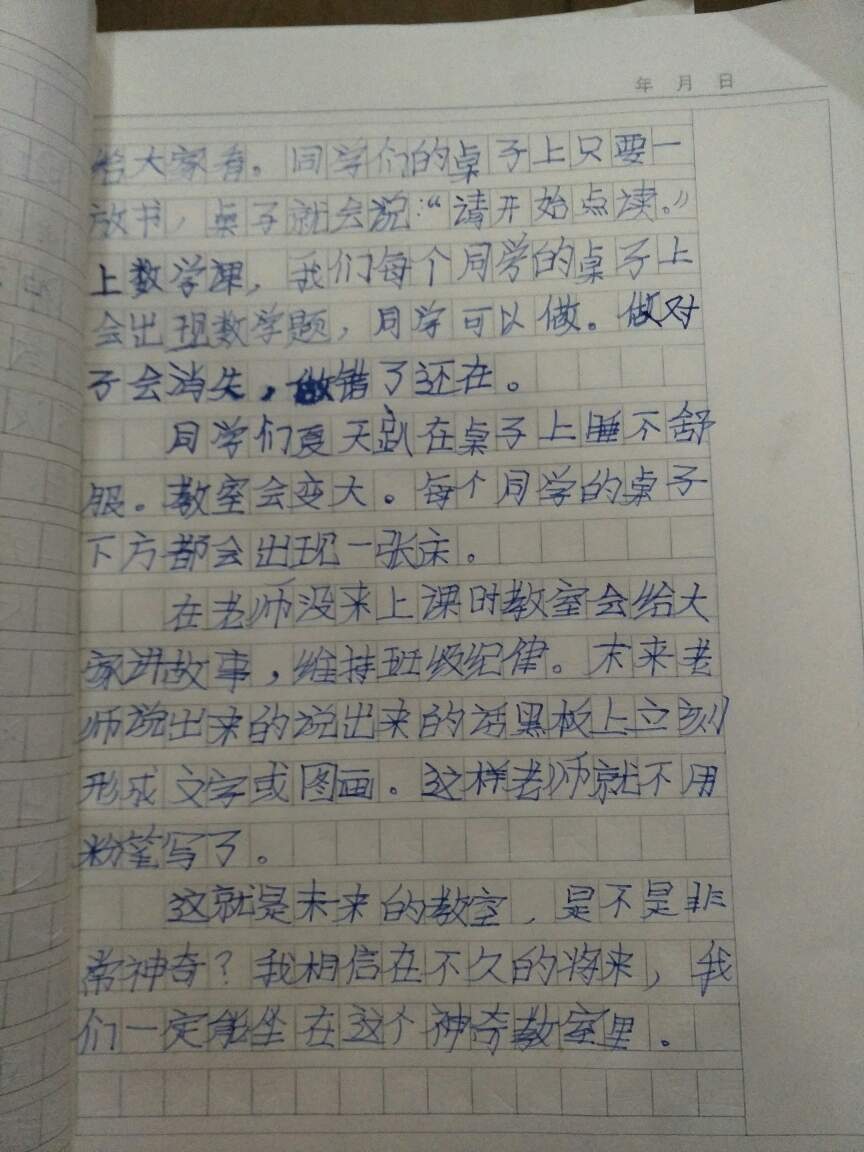 年 月 日
给大家看。同学们的桌子上只要一
放书，桌子就会说：“请开始点读。”
上数学课，我们每个同学的桌子上
会出现数学题，同学可以做。做对
子会消失，做错了还在。
同学们夏天趴在桌子上睡不舒
服。教室会变大。每个同学的桌子
下方都会出现一张床。
在老师没来上课时教室会给大
家讲故事，维持班级纪律。未来老
师说出来的说出来的话黑板上立刻
形成文字或图画。这样老师就不用
粉笔写了。
这就是未来的教室，是不是非
常神奇？我相信在不久的将来，我
们一定能坐在这个神奇教室里。